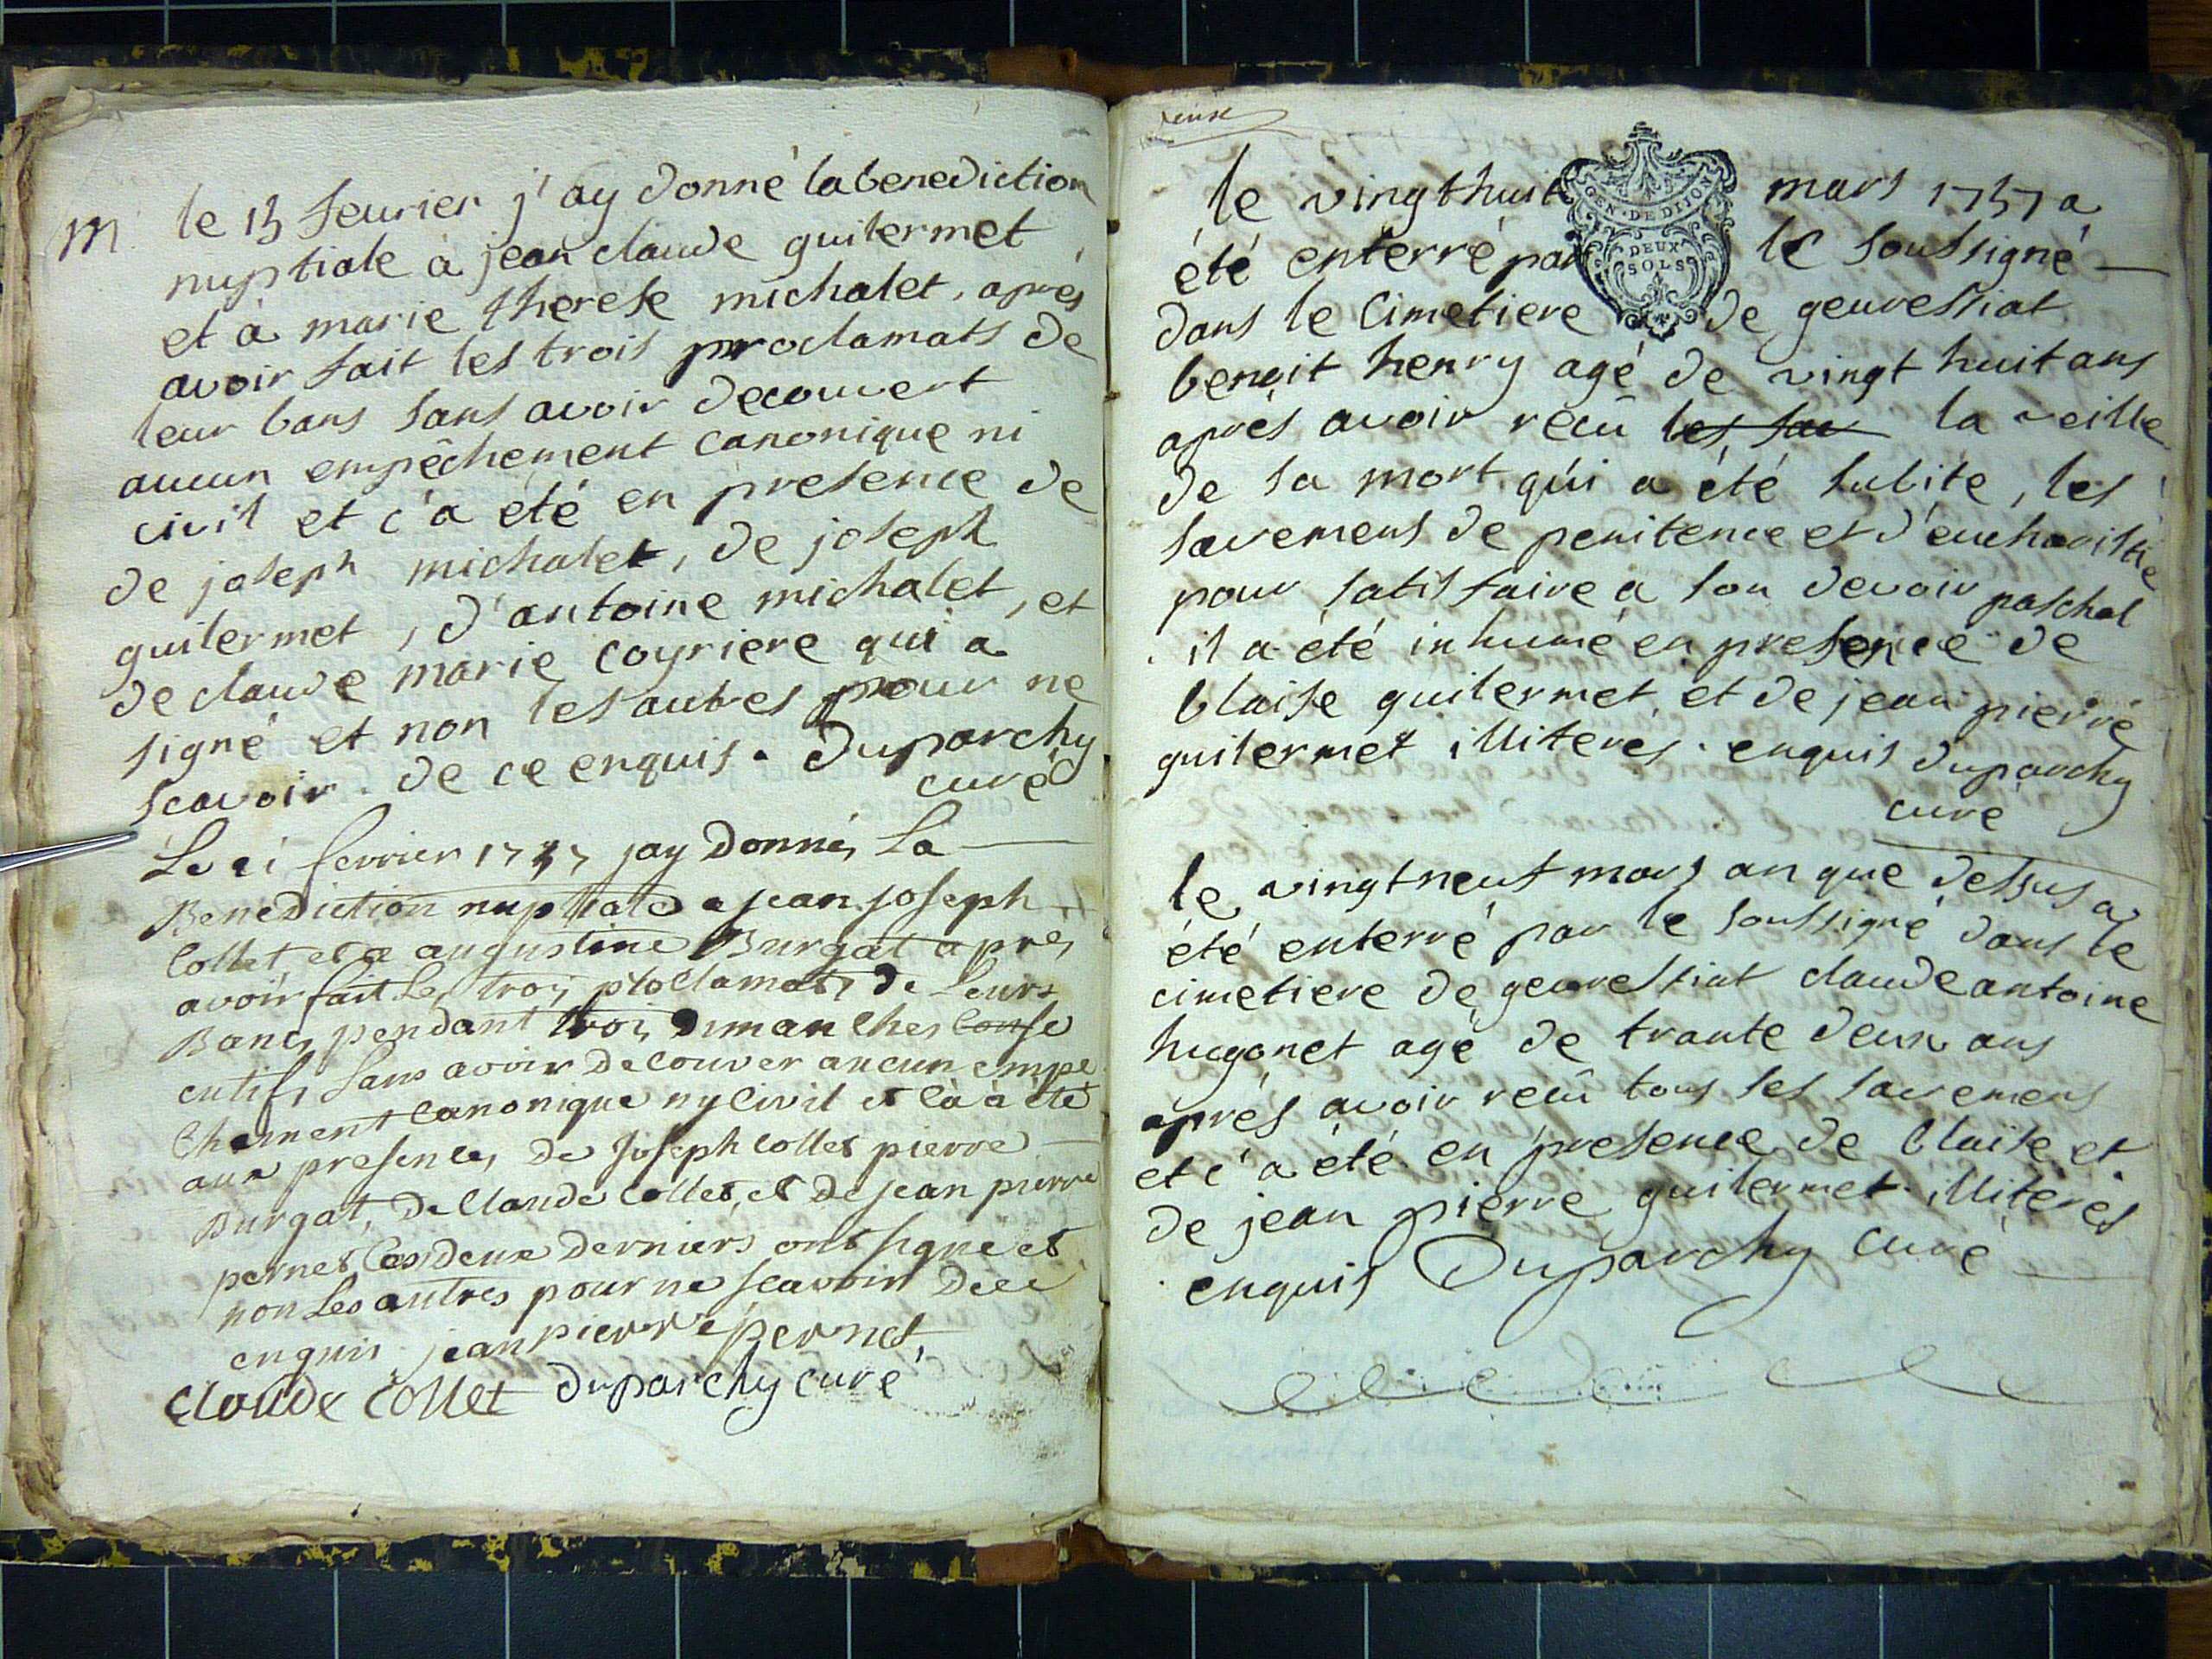 m. le 15 feurier j'ay donné la benediction
nuptiale à jean claude guilermet
et à marie therese michalet, après
avoir fait les trois proclamats de
leur bans sans avoir decouvert
aucun empêchement canonique ni
civil et c'a été en presence de
de joseph michalet, de joseph
guilermet, d'antoine michalet, et
de claude marie coyriere qui a
signé et non les autres pour ne
scavoir. de ce enquis. Duparchy
curé
Le 21 fevrier 1757 jay Donné La
Benediction nuptiale a jean joseph
Collet et a augustine Burgat apres
avoir fait Les trois proclamats de Leurs
Bans pendant trois Dimanches conse
cutifs sans avoir Decouver aucun empe
chement Canonique ny Civil et cà à été
aux presences De Joseph Collet pierre
Burgat, De Claude Collet, et De jean pierre
pernet Les deux Derniers ont signé et
non Les autres pour ne scavoir De ce
enquis. jean pierre pernet,
Claude Collet Duparchy curé
le vingthuit mars 1757 a
GEN · DE DIJON
DEUX
SOLS
été enterré par le soussigné
dans le Cimetiere de geuressiat
benoit henry agé de vingt huit ans
après avoir recû les sac la veille
de sa mort qui a été subite, les
sacremens de penitence et d'eucharistie
pour satisfaire a son devoir paschal
. il a été inhumé en presence de
blaise guilermet, et de jean pierre
guilermet illiterés. enquis duparchy
curé
le vingtneuf mars an que dessus a
été enterré par le soussigné dans le
cimetiere de geuressiat claude antoine
hugonet agé de trante deux ans
après avoir recû tous ses sacremens
et c'a été en presence de blaise et
de jean pierre guilermet. illiterés
enquis Duparchy Curé